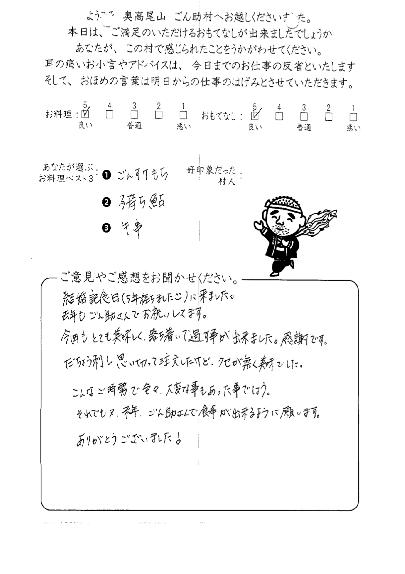 ようこそ 奥高尾山 ごん助村へお越しくださいました。
本日は、ご満足のいただけるおもてなしが出来ましたでしょうか
あなたが、この村で感じられたことをうかがわせてください。
耳の痛いお小言やアドバイスは、今日までのお仕事の反省といたします
そして、おほめの言葉は明日からの仕事のはげみとさせていただきます。
お料理: 5 4 3 2 1 おもてなし: 5 4 3 2 1
良い 普通 悪い 良い 普通 悪い
あなたが選ぶ
お料理ベスト3
好印象だった
村人
❶ ごんすけもち
❷ 子持ち鮎
❸
ご意見やご感想をお聞かせください。
結婚記念日(5年落ちましたこ)に来ました。
去年もごん助さんでお祝いしてます。
今回もとても美味しく落ち着いて過す事が出来ました。感謝です。
だちょう刺し思い切って注文したけど、クセが無く美味でした。
こんなご時勢で色々、大変な事もあった事でしょう。
それでも又、来年、ごん助さんで食事が出来るように願います。
ありがとうございました!